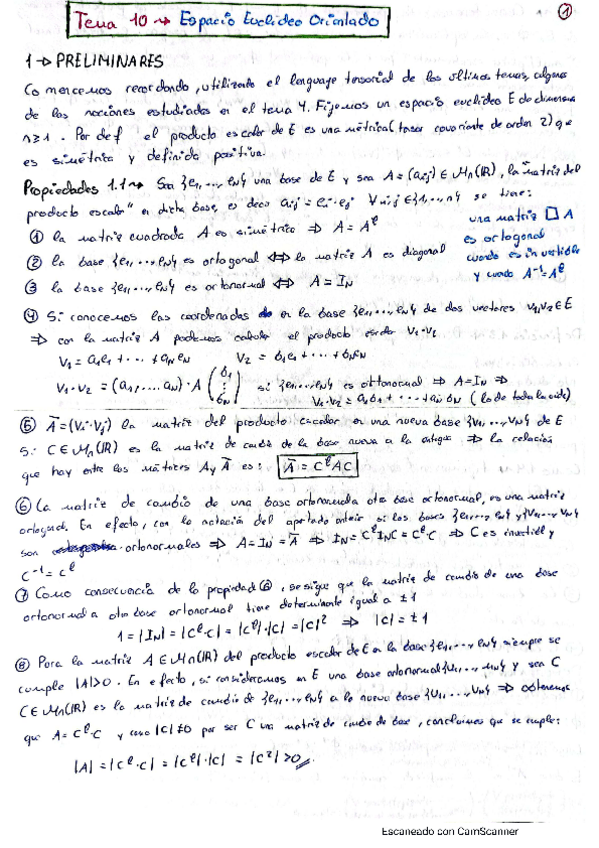 Tema 10 → Espacio Euclídeo Orientado
①
1 → PRELIMINARES
Comencemos recordando, utilizando el lenguage tensorial de los últimos temas, algunas
de las nociones estudiadas en el tema 4. Fijemos un espacio euclídeo E de dimensión
n≥1. Por def el producto escalar de E es una métrica (tensor covariante de orden 2) que
es simétrica y definida positiva.
Propiedades 1.1 → Sea {e₁,..., eₙ} una base de E y sea A = (aᵢⱼ) ∈ Mₙ(ℝ), "la matriz del
producto escalar" en dicha base, es decir aᵢⱼ = eᵢ·eⱼ ∀ i,j ∈ {1,...,n} se tiene:
① la matriz cuadrada A es simétrica ⇒ A = Aᵗ
② la base {e₁,..., eₙ} es ortogonal ⇔ la matriz A es diagonal
③ la base {e₁,..., eₙ} es ortonormal ⇔ A = Iₙ
una matriz □ A
es ortogonal
cuando es invertible
y cuando A⁻¹ = Aᵗ
④ Si conocemos las coordenadas en la base {e₁,..., eₙ} de dos vectores v₁,v₂ ∈ E
⇒ con la matriz A podemos calcular el producto escalar v₁·v₂
v₁ = a₁e₁ + ... + aₙeₙ v₂ = b₁e₁ + ... + bₙeₙ
v₁·v₂ = (a₁,... aₙ)·A (b₁ ⋮ bₙ) si {e₁,..., eₙ} es ortonormal ⇒ A = Iₙ ⇒
v₁·v₂ = a₁b₁ + ... + aₙbₙ (lo de toda la vida)
⑤ Ā = (vᵢ·vⱼ) la matriz del producto escalar en una nueva base {v₁,..., vₙ} de E
Si C ∈ Mₙ(ℝ) es la matriz de cambio de la base nueva a la antigua ⇒ la relación
que hay entre las matrices A y Ā es: Ā = CᵗAC
⑥ La matriz de cambio de una base ortonormal a otra base ortonormal, es una matriz
ortogonal. En efecto, con la notación del apartado anterior si las bases {e₁,..., eₙ} y {v₁,..., vₙ}
son ortonormales ⇒ A = Iₙ = Ā ⇒ Iₙ = CᵗIₙC = Cᵗ·C ⇒ C es invertible y
C⁻¹ = Cᵗ
⑦ Como consecuencia de la propiedad ⑥, se sigue que la matriz de cambio de una base
ortonormal a otra base ortonormal tiene determinante igual a ±1
1 = |Iₙ| = |Cᵗ·C| = |Cᵗ|·|C| = |C|² ⇒ |C| = ±1
⑧ Para la matriz A ∈ Mₙ(ℝ) del producto escalar de E en la base {e₁,..., eₙ} siempre se
cumple |A|>0. En efecto, si consideramos en E una base ortonormal {u₁,..., uₙ} y sea
C ∈ Mₙ(ℝ) es la matriz de cambio de {e₁,..., eₙ} a la nueva base ⇒ obtenemos
que A = Cᵗ·C y como |C| ≠ 0 por ser C una matriz de cambio de base, concluimos que se cumple:
|A| = |Cᵗ·C| = |Cᵗ|·|C| = |C²| > 0
Escaneado con CamScanner